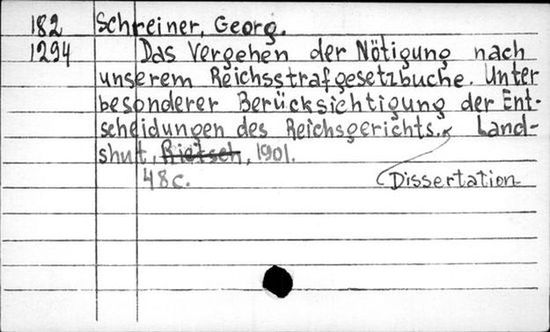 182 Schreiner, Georg.
1294 Das Vergehen der Nötigung nach
unserem Reichsstrafgesetzbuche. Unter
besonderer Berücksichtigung der Ent-
scheidungen des Reichsgerichts. Land-
shut, Rietsch, 1901.
48c. Dissertation